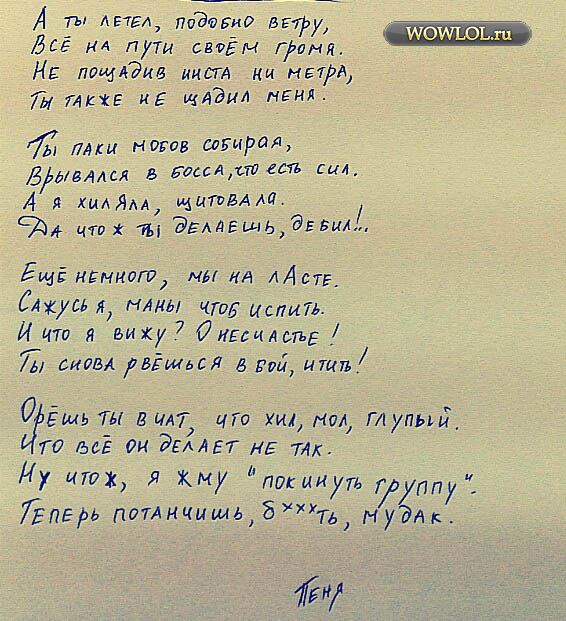 WOWLOL.ru
А ты летел, подобно ветру,
Всё на пути своём громя.
Не пощадив инста ни метра,
Ты также не щадил меня.
Ты паки мобов собирая,
Врывался в босса, что есть сил.
А я хиляла, щитовала.
Да что ж ты делаешь, дебил!..
Ещё немного, мы на лАсте.
Сажусь я, маны чтоб испить.
И что я вижу? О несчастье!
Ты снова рвёшься в бой, итить!
Орёшь ты в чат, что хил, мол, глупый.
Что всё он делает не так.
Ну что ж, я жму "покинуть группу".
Теперь потанчишь, бxxxть, мудак.
Пеня